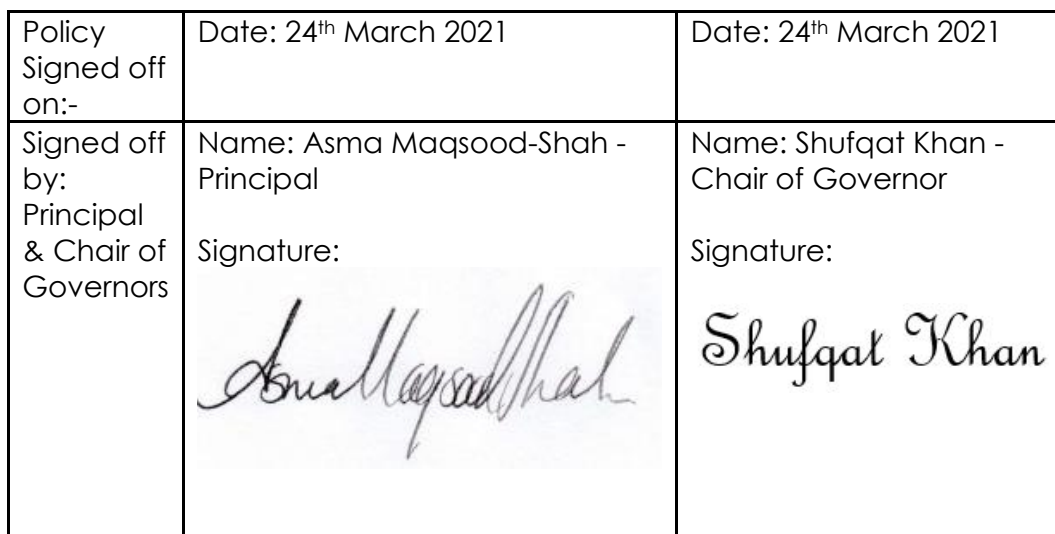 Policy
Signed off
on:-
Date: 24th March 2021
Date: 24th March 2021
Signed off
by:
Principal
& Chair of
Governors
Name: Asma Maqsood-Shah -
Principal
Signature:
Asma Maqsood Shah
Name: Shufqat Khan -
Chair of Governor
Signature:
Shufqat Khan